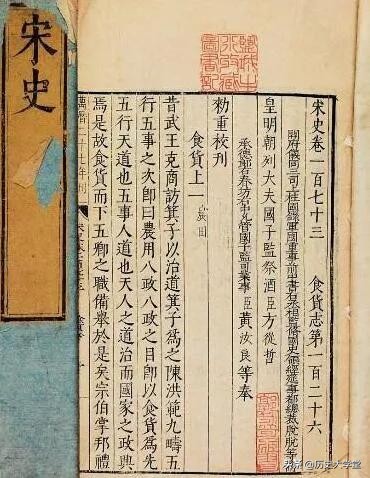 宋史
宋史卷一百七十三 食貨志第一百二十六
開府儀同三司上柱國錄軍國重事前中書右丞相監修國史領經筵事都總裁脫脫等修
皇明朝列大夫國子監祭酒臣方從哲
承德郎右春坊右中允管國子監司業事臣黃汝良等奉
勑重校刊
食貨上一 農田
昔武王克商訪箕子以治道箕子爲之陳洪範九疇五
行五事之次即曰農用八政八政之目即以食貨爲先
五行天道也五事人道也天人之道治而國家之政興
焉是故食貨而下五卿之職備舉於是矣宗伯掌邦禮
萬曆二十七年刊
头条 @历史大学堂